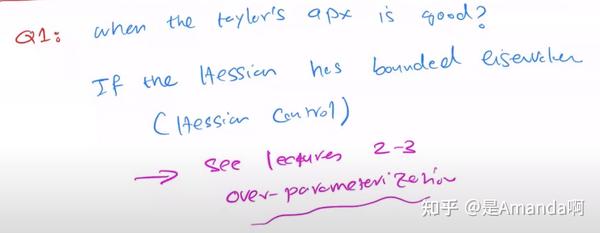 Q1: when the taylor's apx is good?
If the Hessian has bounded eigenvalues
(Hessian Control)
→ see lectures 2-3
over-parameterization
知乎 @是Amanda啊